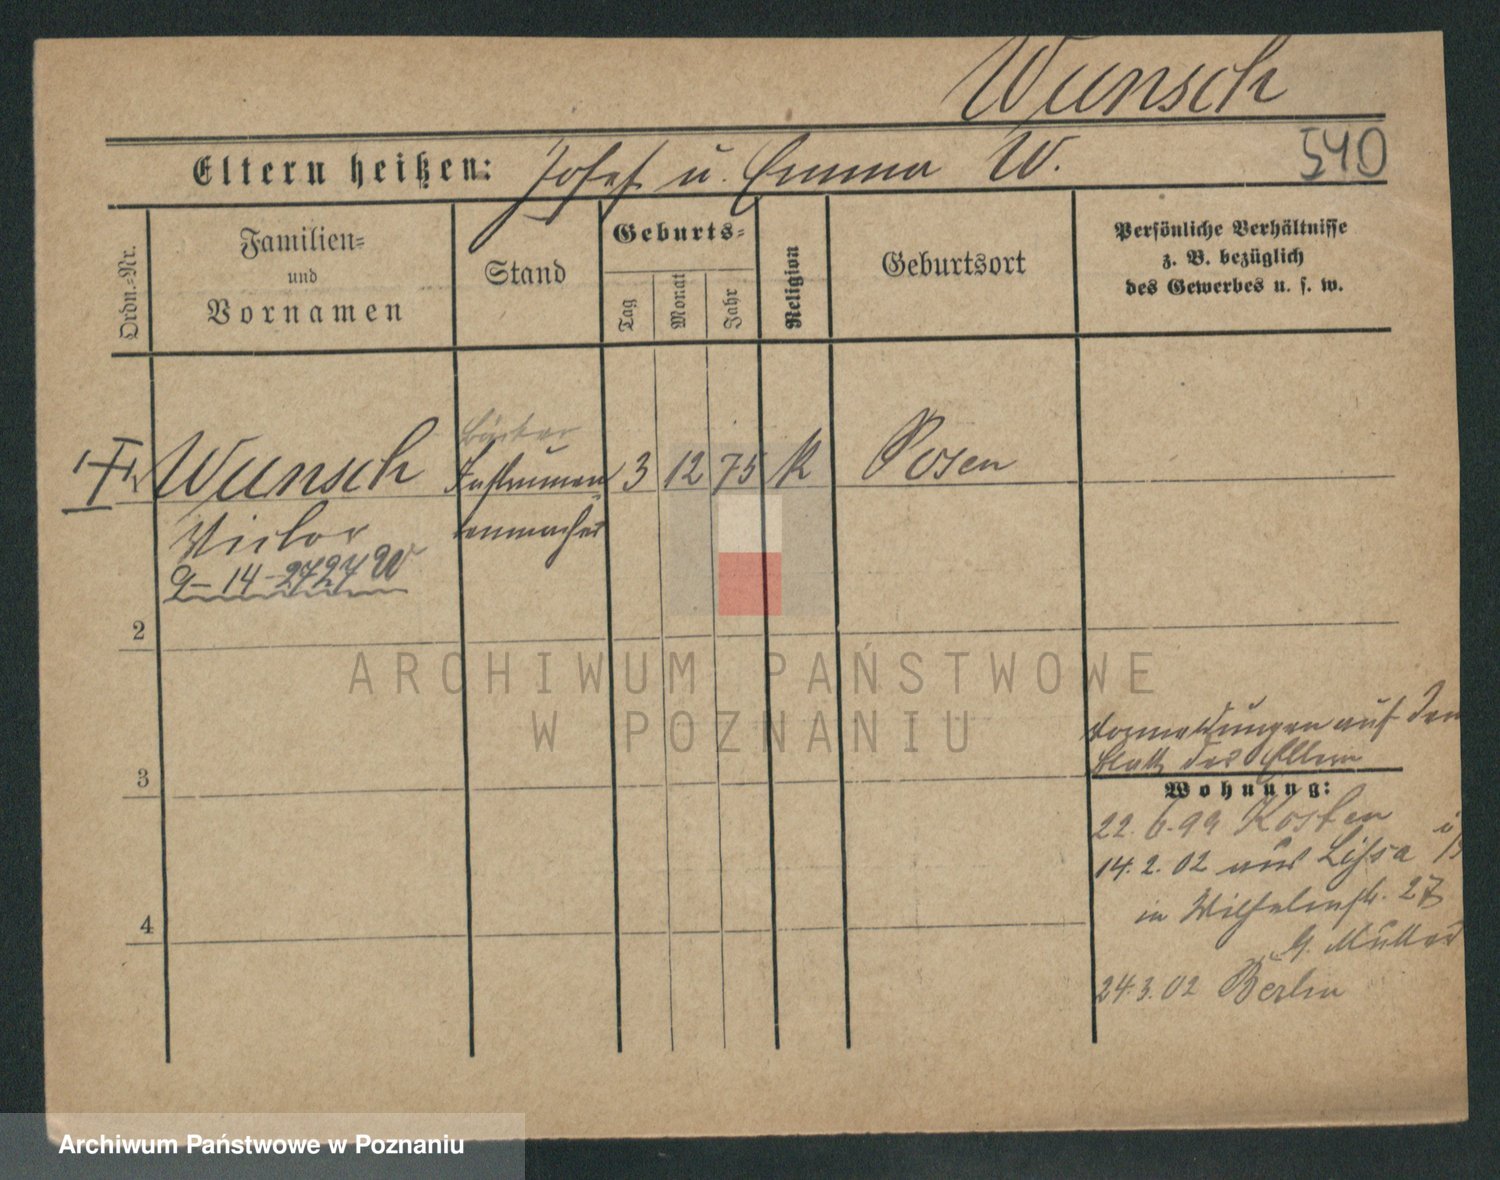 Wunsch
Eltern heißen: Josef u. Emma W. 540
Ordn.-Nr.
Familien-
und
Vornamen
Stand
Geburts-
Tag
Monat
Jahr
Religion
Geburtsort
Persönliche Verhältnisse
z. B. bezüglich
des Gewerbes u. s. w.
Bäcker
Wunsch Instrumen 3 12 75 K Posen
Victor tenmacher
9-14-2727 W
2
ARCHIWUM PAŃSTWOWE
W POZNANIU
Vormeldungen auf dem
Blatt der Eltern
3
Wohnung:
22.6.99 Kosten
14.2.02 aus Lissa i/P
in Wilhelmstr. 27
b. Müller
4
24.3.02 Berlin
Archiwum Państwowe w Poznaniu